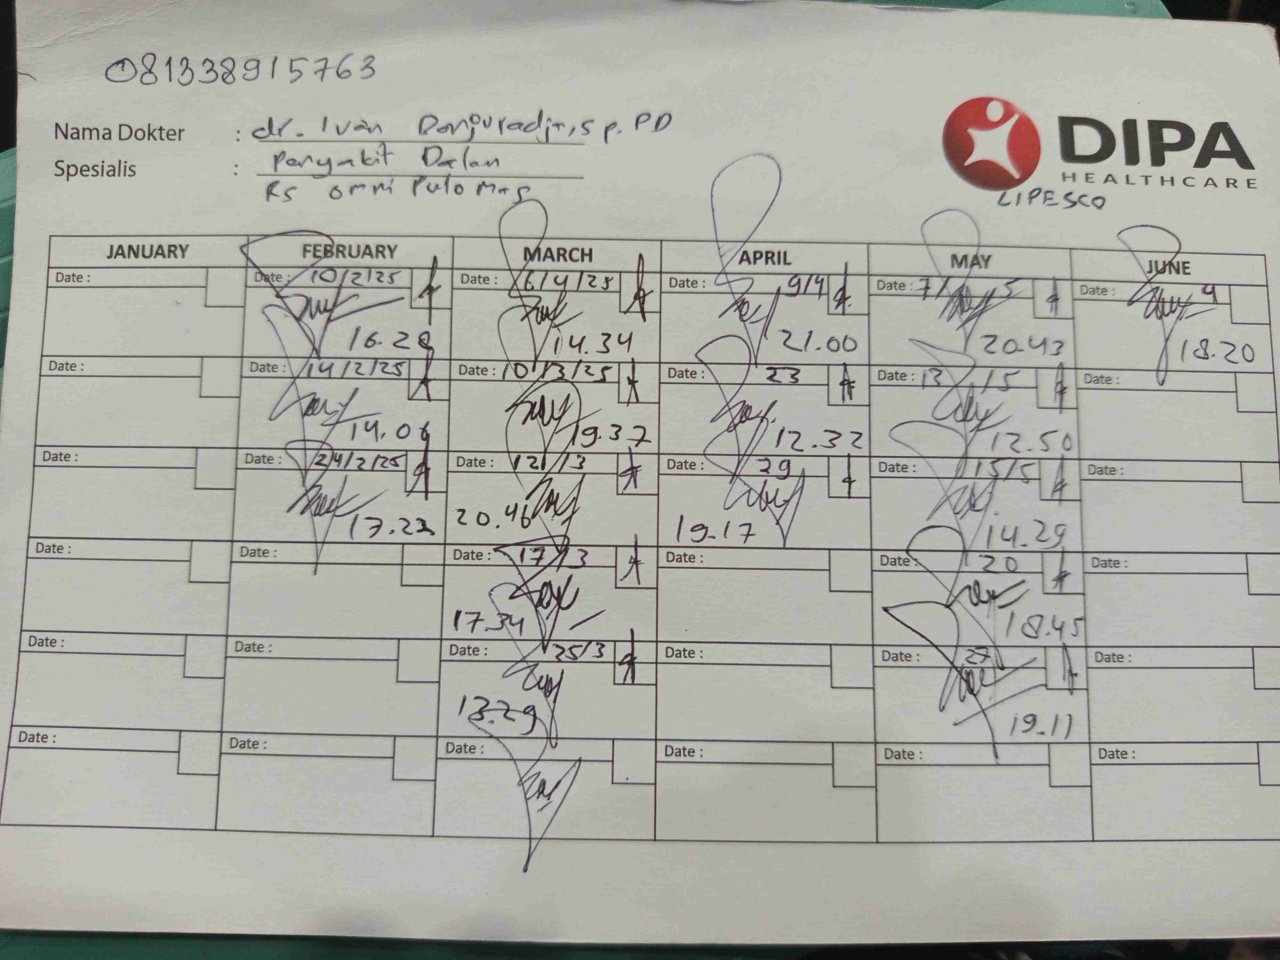 081338915763
Nama Dokter : dr. Ivan Danjuradja, Sp. PD
Spesialis : Penyakit Dalam
Rs omni Pulo Mas
DIPA
HEALTHCARE
LIPESCO
JANUARY FEBRUARY MARCH APRIL MAY JUNE
Date : Date : 10/2/25 Date : 6/4/25 Date : 9/4 Date : 7/5 Date : 4
16.28 14.34 21.00 20.43 18.20
Date : Date : 14/2/25 Date : 10/3/25 Date : 23 Date : 13/5 Date :
14.06 19.37 12.32 12.50
Date : Date : 24/2/25 Date : 12/3 Date : 29 Date : 15/5 Date :
17.23 20.46 19.17 14.29
Date : Date : Date : 17/3 Date : Date : 20 Date :
17.34 18.45
Date : Date : Date : 25/3 Date : Date : 27 Date :
13.29 19.11
Date : Date : Date : Date : Date : Date :